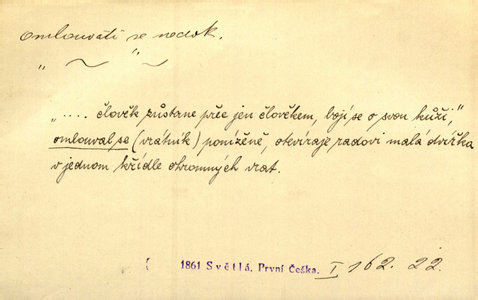 omlouvati se nedok.
" ~ " ~
".... člověk zůstane přec jen člověkem, bojí se o svou kůži,"
omlouval se (vrátník) poníženě, otevíraje radovi malá dvířka
v jednom křídle ohromných vrat.
1861 Světlá. První Češka. I 162. 22.